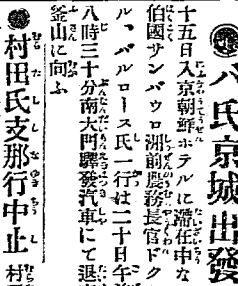 バ氏京城出發
十五日入京朝鮮ホテルに滯在中な
伯國サンパウロ洲前農務長官ドク
ル、バルロース氏一行は二十日午
八時三十分南大門驛發汽車にて退
釜山に向ふ
村田氏支那行中止
村